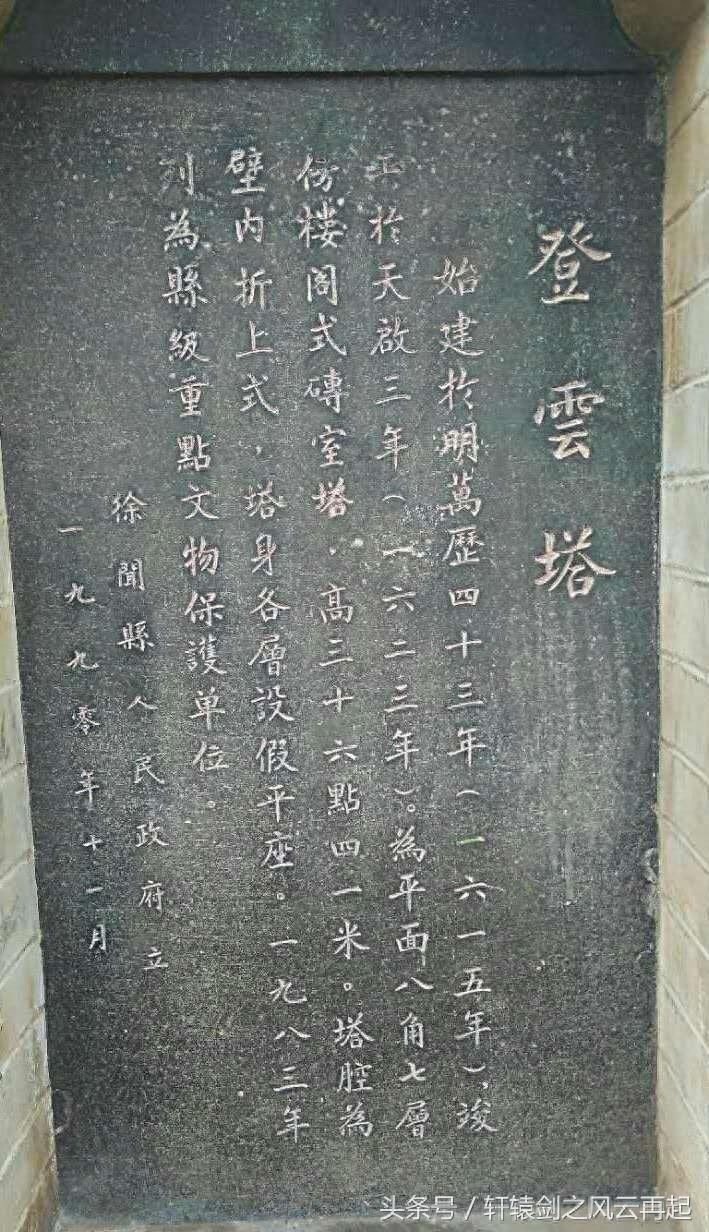 登雲塔
始建於明萬歷四十三年（一六一五年），竣
工於天啟三年（一六二三年）。為平面八角七層
仿樓阁式磚室塔，高三十六點四一米。塔腔為
壁内折上式，塔身各層設假平座。一九八三年
列為縣級重點文物保護单位。
徐聞縣人民政府立
一九九零年十一月
头条号／轩辕剑之风云再起